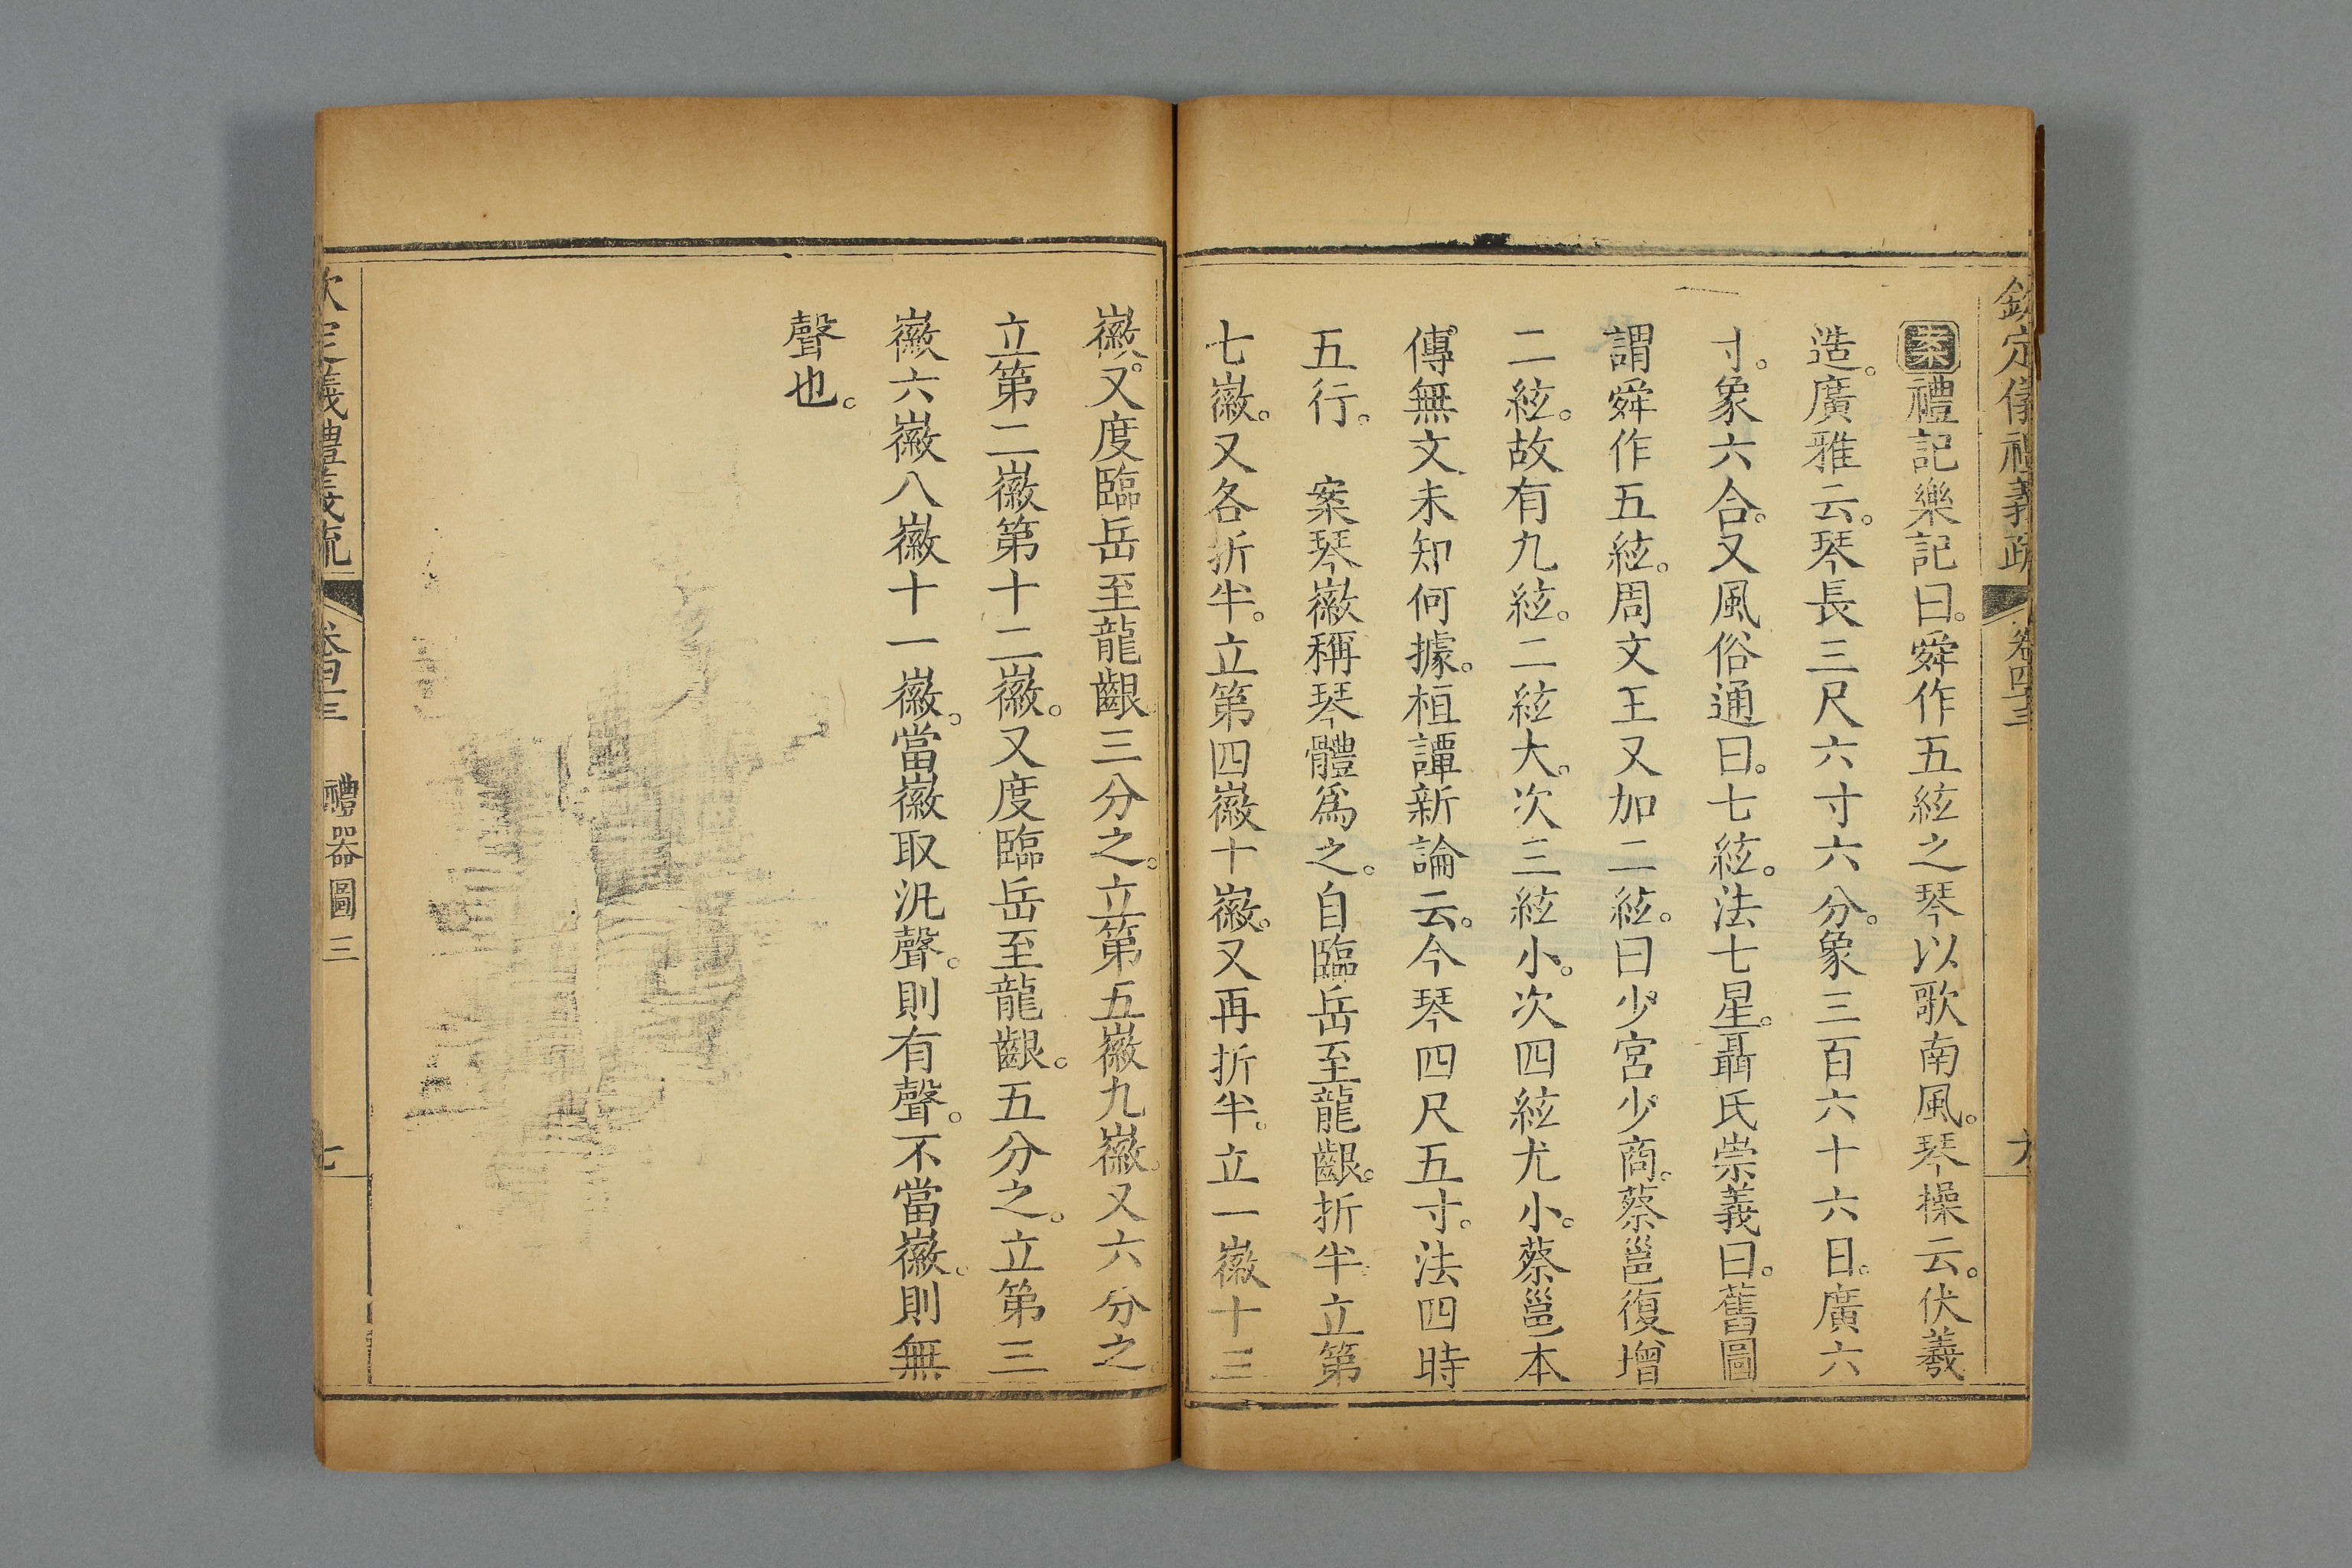 欽定儀禮義疏 卷四十三
案禮記樂記曰。舜作五絃之琴以歌南風。琴操云。伏羲
造。廣雅云。琴長三尺六寸六分。象三百六十六日。廣六
寸。象六合。又風俗通曰。七絃。法七星。聶氏崇義曰。舊圖
謂舜作五絃。周文王又加二絃。曰少宮少商。蔡邕復增
二絃。故有九絃。二絃大。次三絃小。次四絃尤小。蔡邕本
傳無文。未知何據。桓譚新論云。今琴四尺五寸。法四時
五行。 案琴徽稱琴體爲之。自臨岳至龍齦。折半。立第
七徽。又各折半。立第四徽十徽。又再折半。立一徽十三
徽。又度臨岳至龍齦三分之。立第五徽九徽。又六分之。
立第二徽第十二徽。又度臨岳至龍齦。五分之。立第三
徽六徽八徽十一徽。當徽取汎聲。則有聲。不當徽。則無
聲也。
欽定儀禮義疏 卷四十三 禮器圖三 七